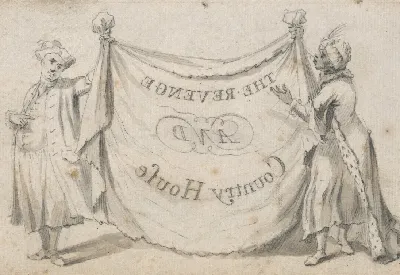 THE REVENGE
AND
Country Houſe